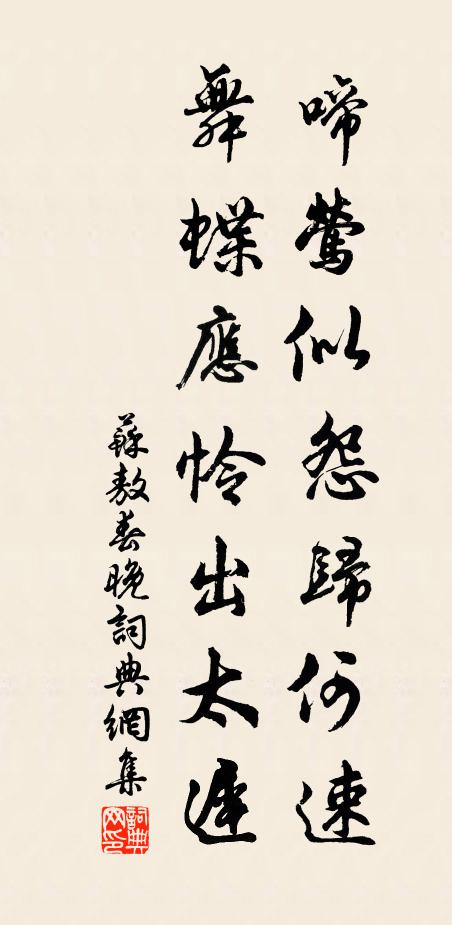 啼鶯似怨歸何速
舞蝶應怜出太遲
蘇敖春晚詞典網集
詞典网印